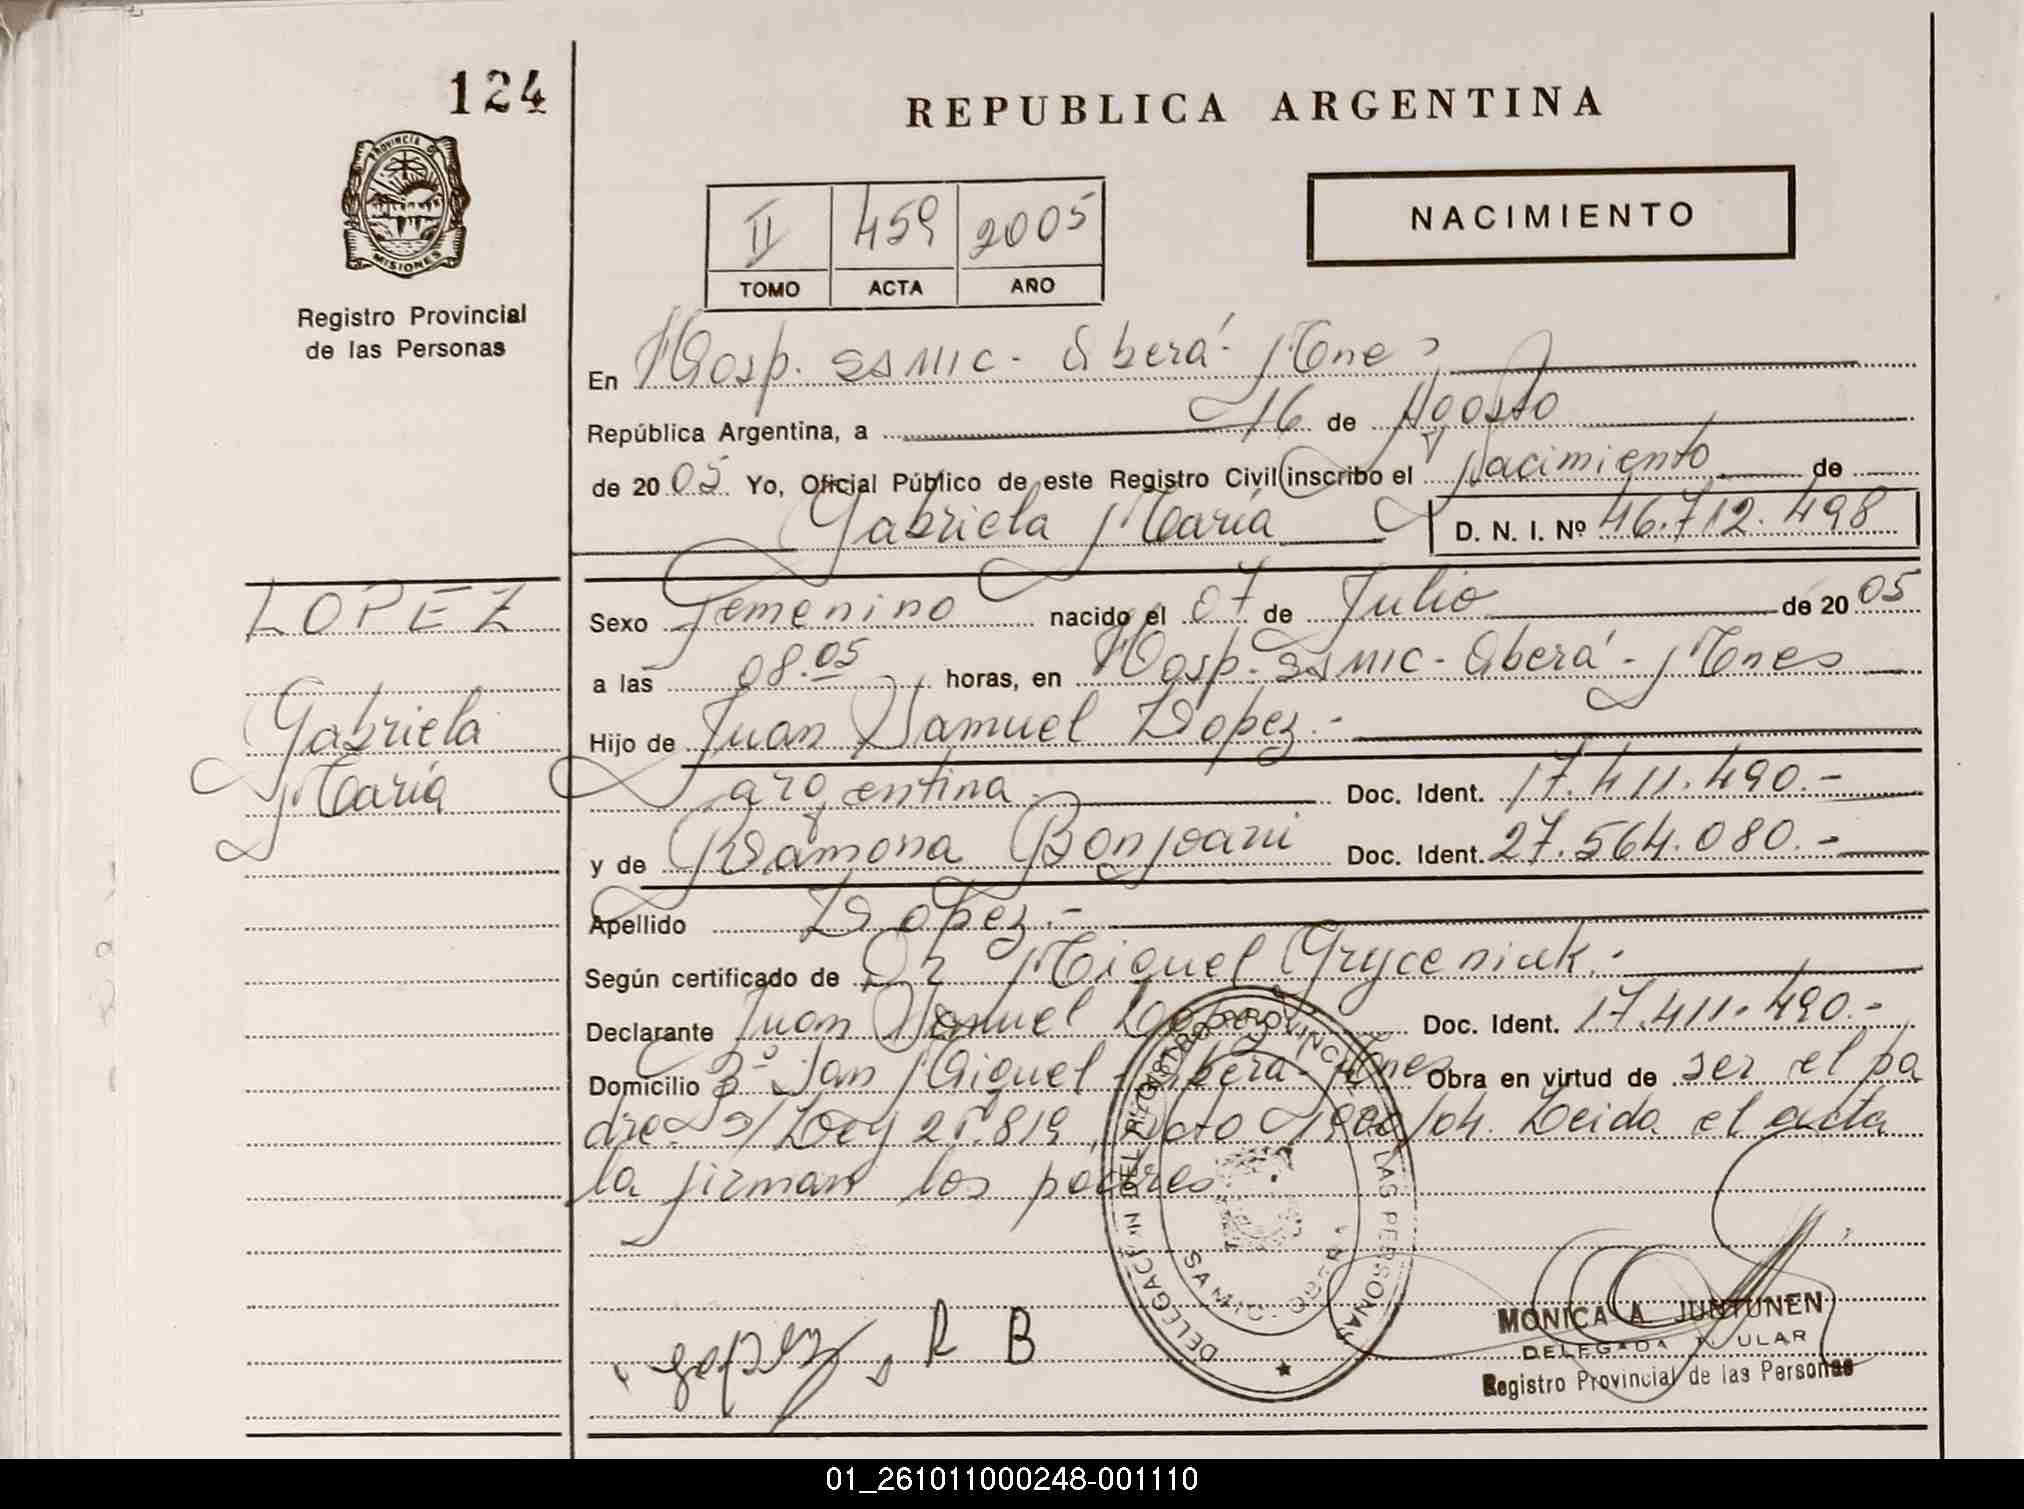 124
REPUBLICA ARGENTINA
PROVINCIA D
MISIONES
Registro Provincial
de las Personas
II 459 2005
TOMO ACTA AÑO
NACIMIENTO
En Hosp. SAMIC - Oberá - Mnes
República Argentina, a 16 de Agosto
de 2005 Yo, Oficial Público de este Registro Civil inscribo el Nacimiento de
Gabriela María D. N. I. Nº 46.712.498
LOPEZ
Gabriela
María
Sexo Femenino nacido el 07 de Julio de 2005
a las 08.05 horas, en Hosp. SAMIC - Oberá - Mnes
Hijo de Juan Samuel Lopez.-
argentina Doc. Ident. 17.411.490.-
y de Ramona Bonjoani Doc. Ident. 27.564.080.-
Apellido Lopez.-
Según certificado de Dr Miguel Gryceniuk.-
Declarante Juan Samuel Lopez Doc. Ident. 17.411.490.-
Domicilio Bº San Miguel - Oberá - Mnes Obra en virtud de ser el pa
dre. S/Ley 25.819, Dcto 1900/04. Leida el acta
la firman los padres
DELEGACIÓN DEL REGISTRO PROVINCIAL DE LAS PERSONAS
SAMIC. OBERA
Lopez R B
MONICA A. JUNTUNEN
DELEGADA TITULAR
Registro Provincial de las Personas
01_261011000248-001110